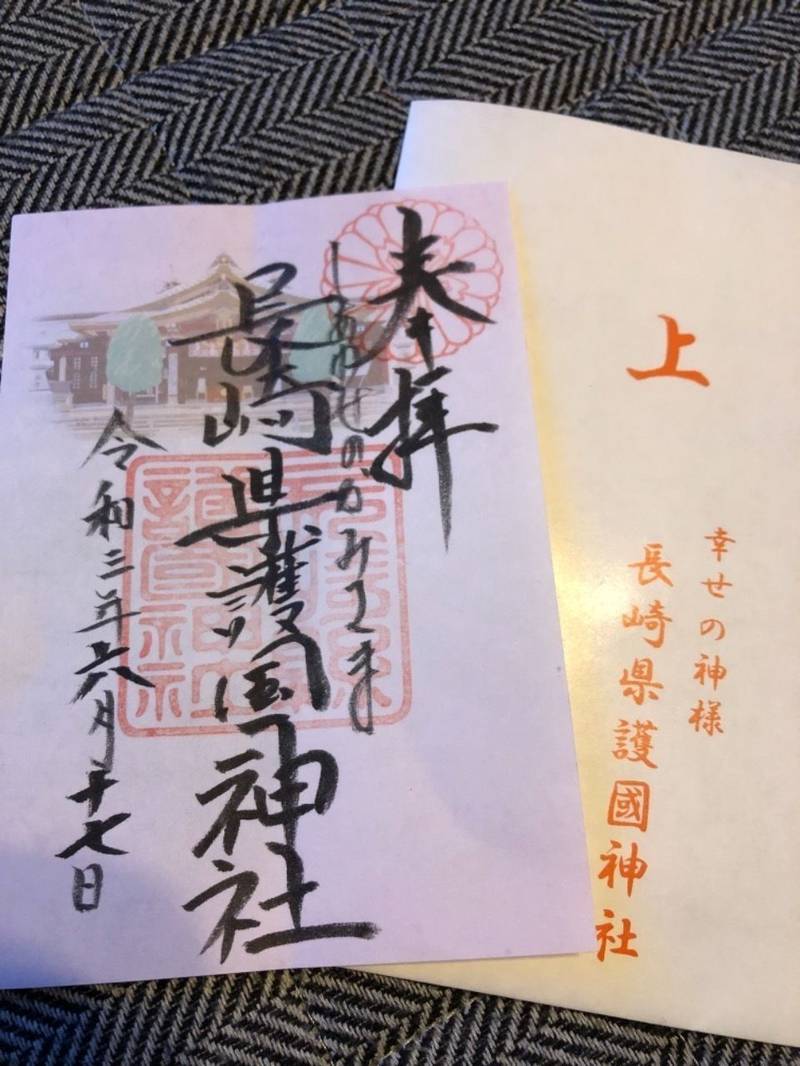 奉拝
しあわせのかみさま
長崎県護国神社
令和三年六月十七日
上
幸せの神様
長崎県護國神社